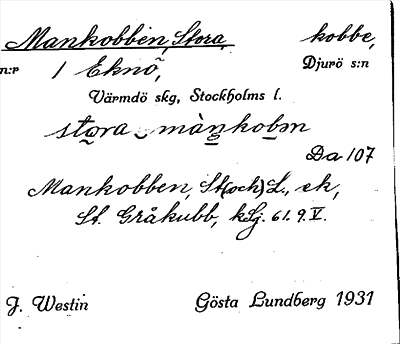 Mankobben, Stora, kobbe,
n:r 1 Eknö, Djurö s:n
Värmdö skg, Stockholms l.
stora mànkobən
Da 107
Mankobben, St(och) L., ek,
St. Gråkubb, kLj. 61. 9. V.
J. Westin Gösta Lundberg 1931